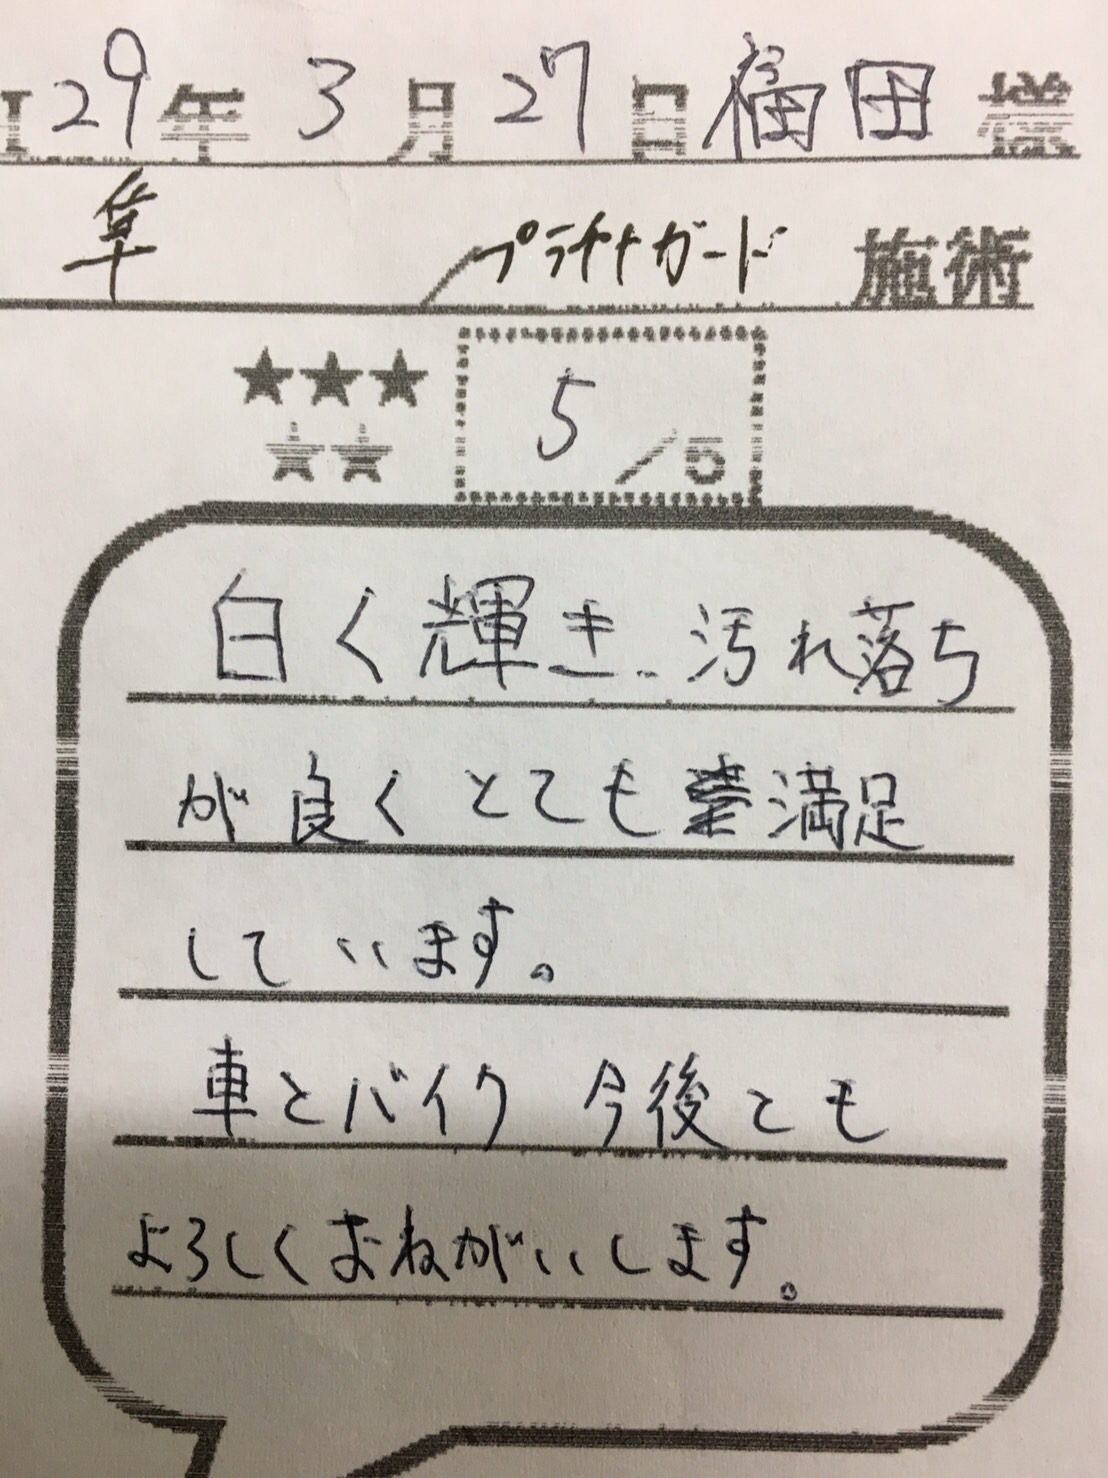 29年 3月 27日 福田 様
隼 プラチナガード 施術
★★★ 5
★★ /5
白く輝き、汚れ落ち
が良くとても満足
しています。
車とバイク 今後とも
よろしくおねがいします。